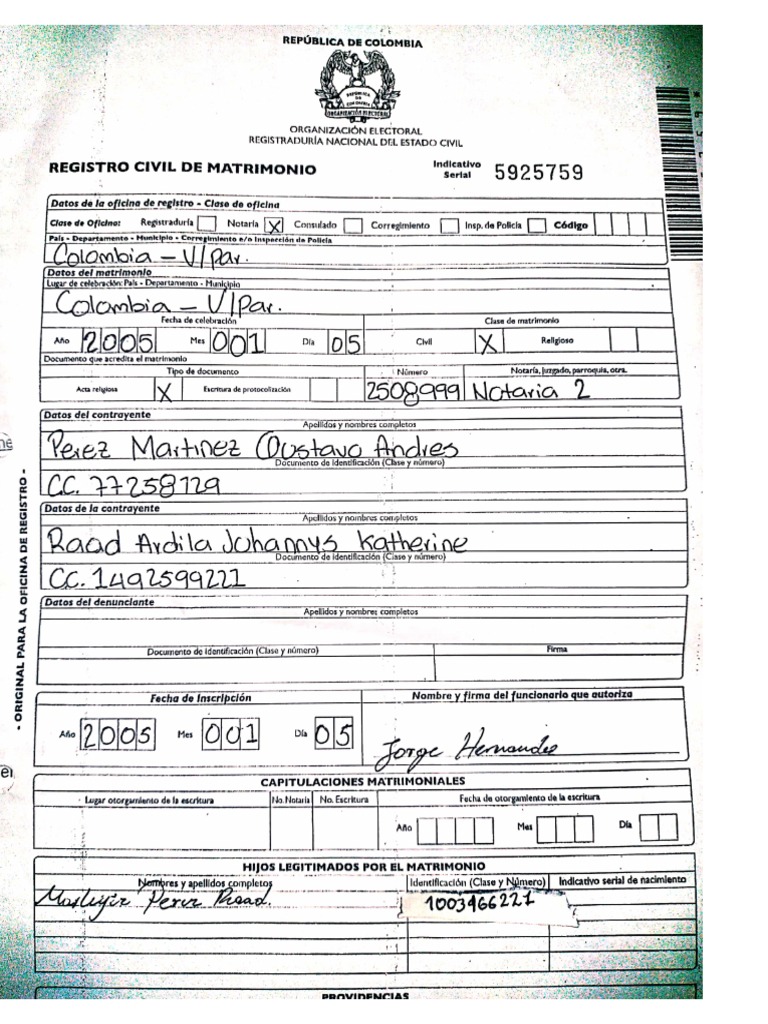 REPÚBLICA DE COLOMBIA
REPÚBLICA DE COLOMBIA
ORGANIZACIÓN ELECTORAL
ORGANIZACIÓN ELECTORAL
REGISTRADURÍA NACIONAL DEL ESTADO CIVIL
REGISTRO CIVIL DE MATRIMONIO
Indicativo Serial 5925759
Datos de la oficina de registro - Clase de oficina
Clase de Oficina: Registraduría Notaría X Consulado Corregimiento Insp. de Policía Código
País - Departamento - Municipio - Corregimiento e/o Inspección de Policía
Colombia - V/Par.
Datos del matrimonio
Lugar de celebración: País - Departamento - Municipio
Colombia - V/Par.
Fecha de celebración Clase de matrimonio
Año 2005 Mes 001 Día 05 Civil X Religioso
Documento que acredita el matrimonio
Tipo de documento Número Notaría, juzgado, parroquia, otra.
Acta religiosa X Escritura de protocolización 2508999 Notaria 2
Datos del contrayente
Apellidos y nombres completos
Perez Martinez Gustavo Andres
Documento de identificación (Clase y número)
C.C. 77258129
Datos de la contrayente
Apellidos y nombres completos
Raad Ardila Johannys Katherine
Documento de identificación (Clase y número)
CC. 1492599221
Datos del denunciante
Apellidos y nombres completos
Documento de identificación (Clase y número) Firma
Fecha de inscripción Nombre y firma del funcionario que autoriza
Año 2005 Mes 001 Día 05
Jorge Hernandez
CAPITULACIONES MATRIMONIALES
Lugar otorgamiento de la escritura No. Notaría No. Escritura Fecha de otorgamiento de la escritura
Año Mes Día
HIJOS LEGITIMADOS POR EL MATRIMONIO
Nombres y apellidos completos Identificación (Clase y Número) Indicativo serial de nacimiento
Perez Raad. 1003966221
PROVIDENCIAS
- ORIGINAL PARA LA OFICINA DE REGISTRO -